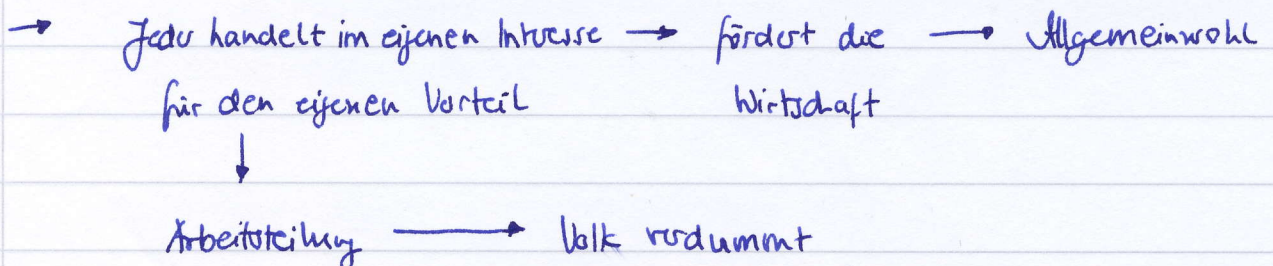 → Jeder handelt im eigenen Interesse → fördert die → Allgemeinwohl
für den eigenen Vorteil Wirtschaft
↓
Arbeitsteilung → Volk verdummt